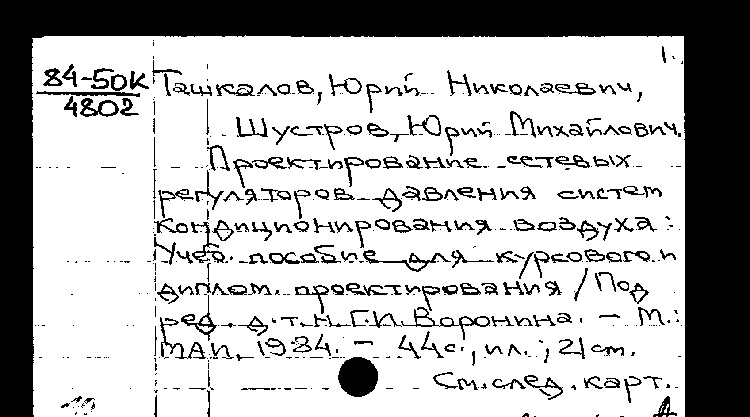 1.
84-50К Ташкалов, Юрий Николаевич,
4802
Шустров, Юрий Михайлович.
Проектирование сетевых
регуляторов давления систем
кондиционирования воздуха:
Учеб. пособие для курсового и
диплом. проектирования / Под
ред. д.т.н. Г.И. Воронина. — М.:
МАИ, 1984. — 44 с., ил.; 21 см.
См. след. карт.